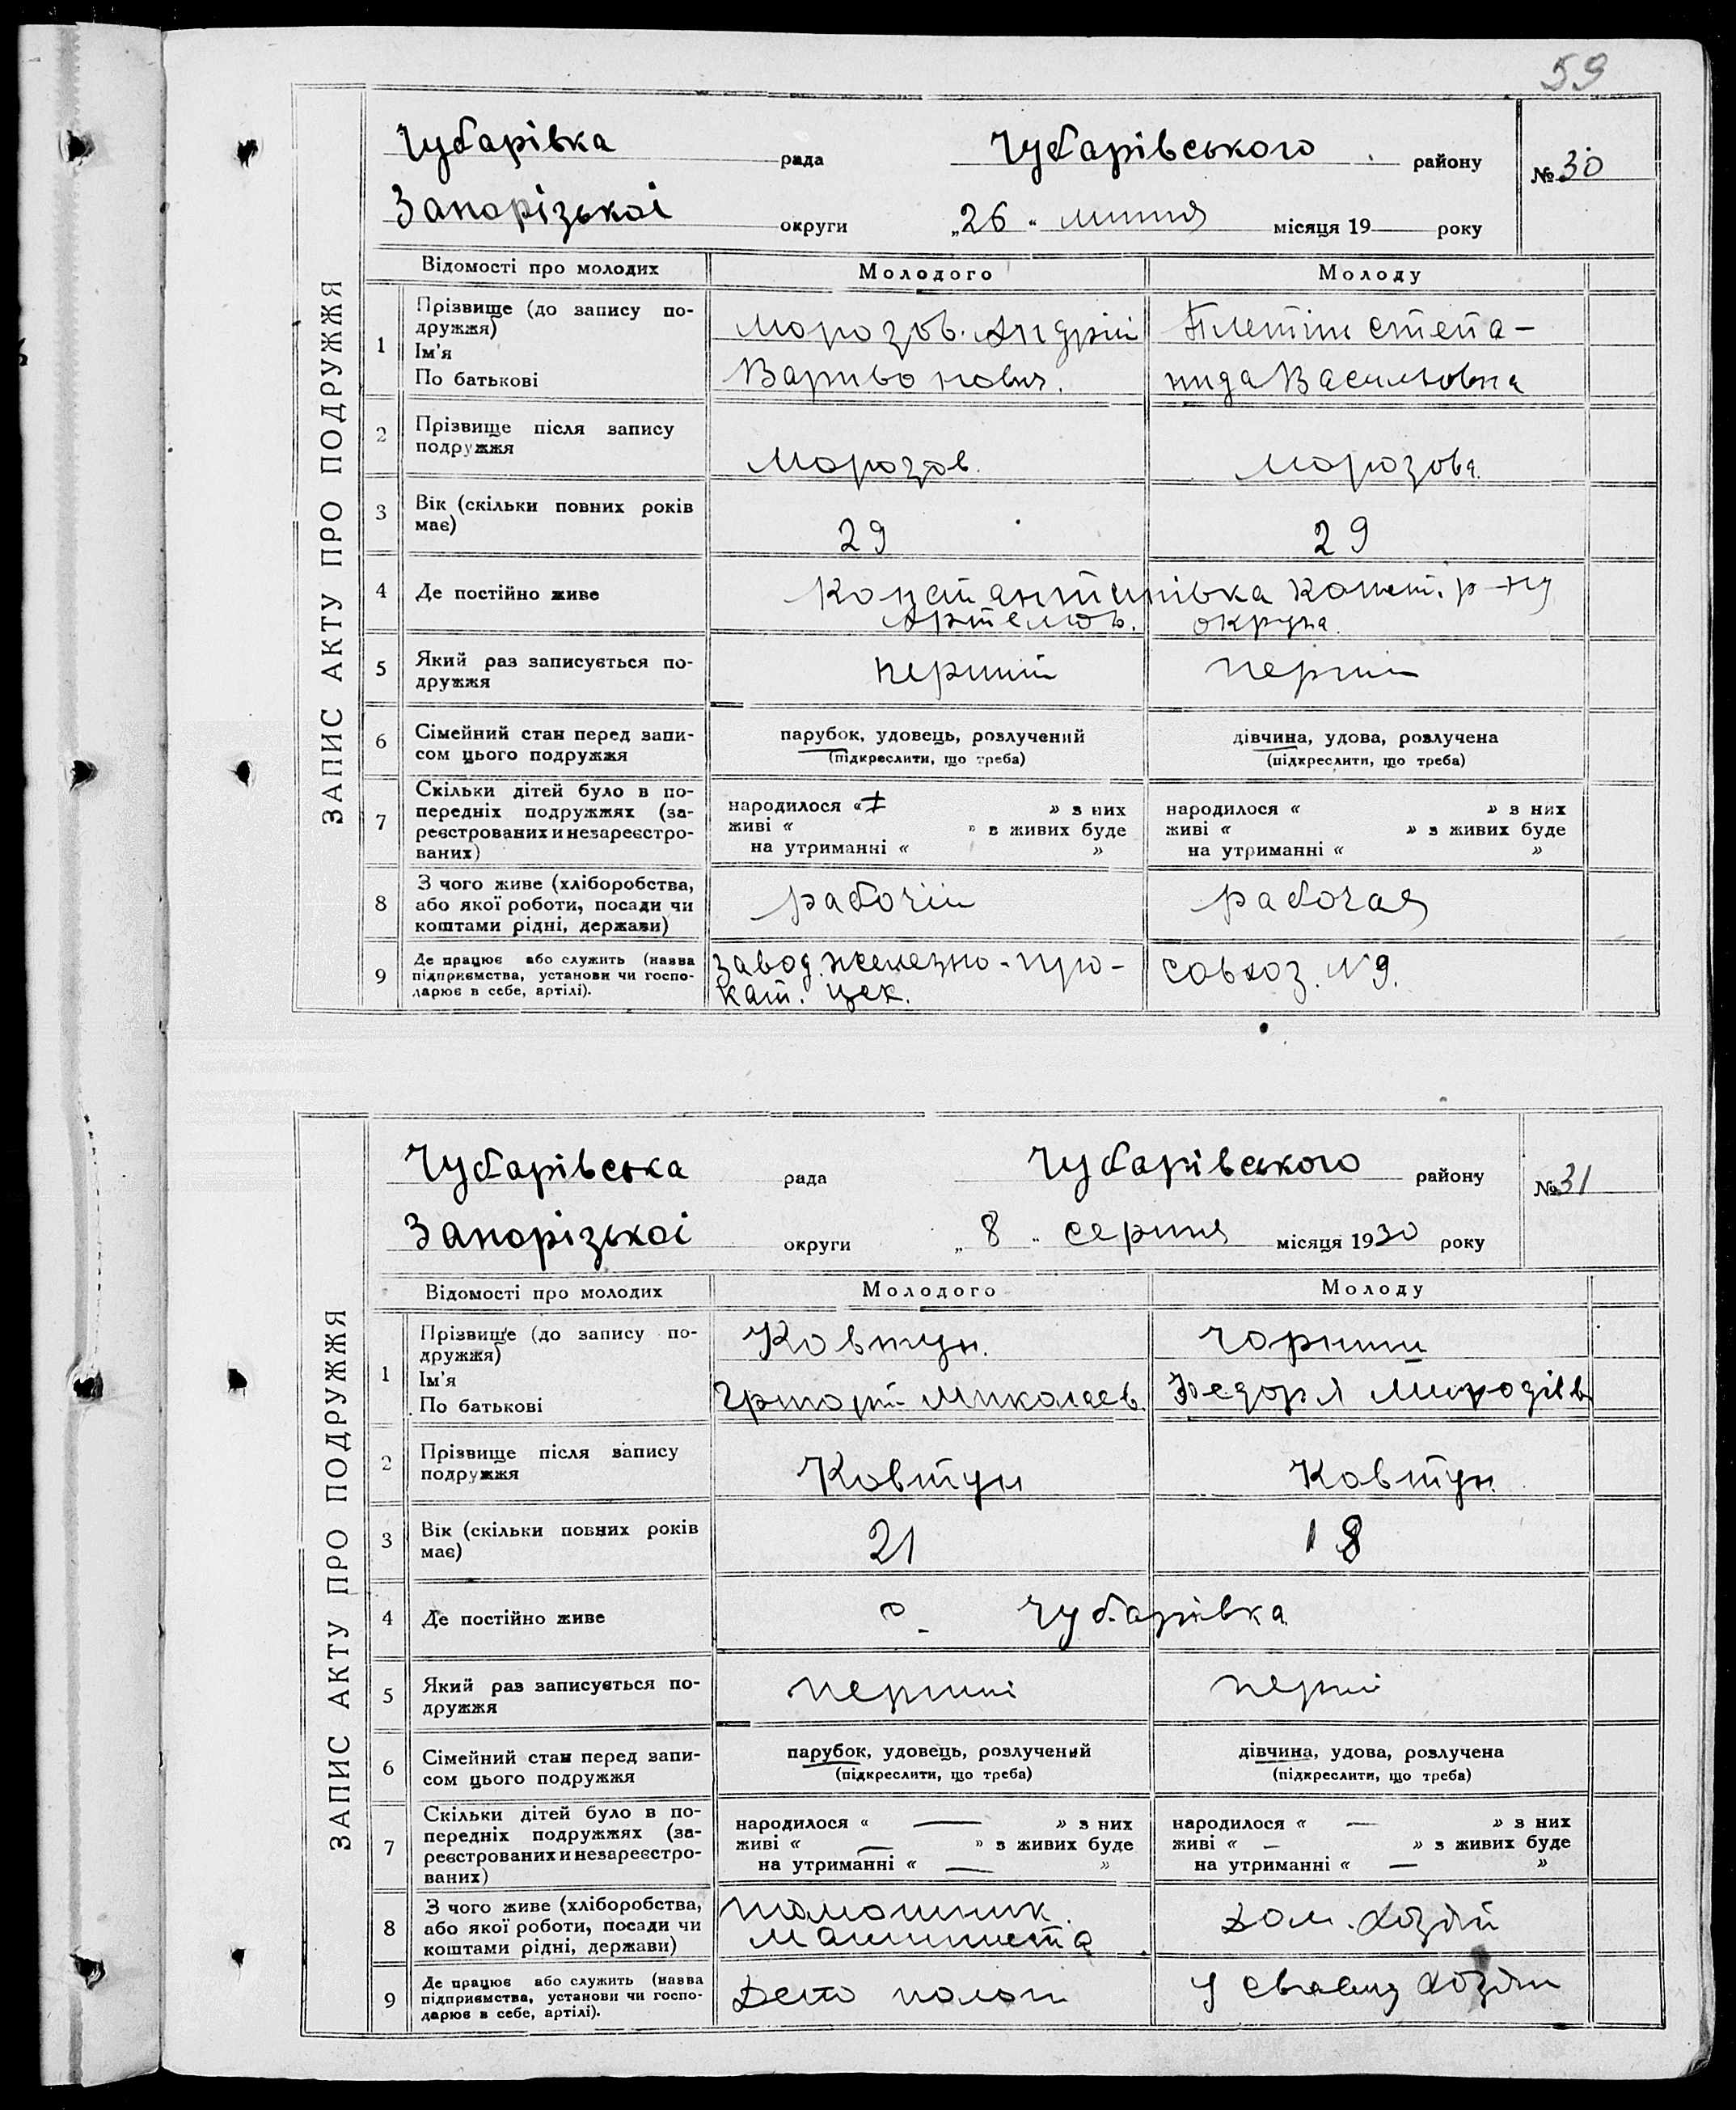 59
ЗАПИС АКТУ ПРО ПОДРУЖЖЯ
Чубарівка рада Чубарівського району №30
Запорізької округи „26“ липня місяця 19 року
Відомості про молодих Молодого Молоду
1 Прізвище (до запису подружжя)
Ім'я
По батькові
Морозов Андрій
Варивонович.
степа-
нида Васильовна
2 Прізвище після запису
подружжя
Морозов. Морозова.
3 Вік (скільки повних років
має)
29 29
4 Де постійно живе
Константинівка Конст. р-ну
Артемов. округа.
5 Який раз записується по-
дружжя
перший перший
6 Сімейний стан перед запи-
сом цього подружжя
парубок, удовець, розлучений
(підкреслити, що треба)
дівчина, удова, розлучена
(підкреслити, що треба)
7 Скільки дітей було в по-
передніх подружжях (за-
реєстрованих и незареєстро-
ваних)
народилося « » з них
живі « » з живих буде
на утриманні « »
народилося « » з них
живі « » з живих буде
на утриманні « »
8 З чого живе (хліборобства,
або якої роботи, посади чи
коштами рідні, держави)
рабочій рабочая
9 Де працює або служить (назва
підприємства, установи чи госпо-
дарює в себе, артілі).
завод. железно-про-
кат. цех.
совхоз. №9.
ЗАПИС АКТУ ПРО ПОДРУЖЖЯ
Чубарівська рада Чубарівського району №31
Запорізької округи „8“ серпня місяця 1930 року
Відомості про молодих Молодого Молоду
1 Прізвище (до запису по-
дружжя)
Ім'я
По батькові
Ковтун.
Григорій Миколаєв.
2 Прізвище після запису
подружжя
Ковтун Ковтун
3 Вік (скільки повних років
має)
21 18
4 Де постійно живе
Чубарівка
5 Який раз записується по-
дружжя
перший перший
6 Сімейний стан перед запи-
сом цього подружжя
парубок, удовець, розлучений
(підкреслити, що треба)
дівчина, удова, розлучена
(підкреслити, що треба)
7 Скільки дітей було в по-
передніх подружжях (за-
реєстрованих и незареєстро-
ваних)
народилося « — » з них
живі « — » з живих буде
на утриманні « — »
народилося « — » з них
живі « — » з живих буде
на утриманні « — »
8 З чого живе (хліборобства,
або якої роботи, посади чи
коштами рідні, держави)
помошник
машиниста
Дом. хозяй
9 Де працює або служить (назва
підприємства, установи чи госпо-
дарює в себе, артілі).
Депо пологи
у своему хозяй